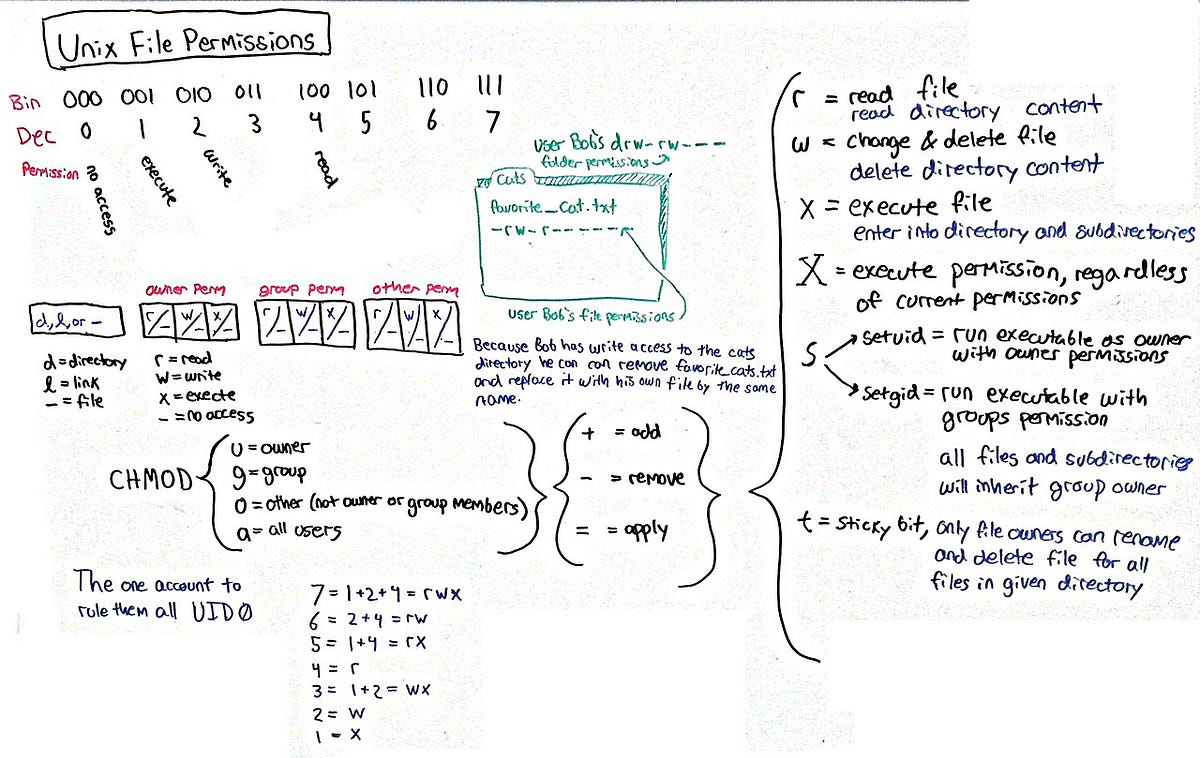 Unix File Permissions
Bin 000 001 010 011 100 101 110 111
Dec 0 1 2 3 4 5 6 7
Permission no access execute write read
user Bob's drw-rw----
folder permissions
Cats
favorite_cat.txt
-rw-r------
user Bob's file permissions
Because Bob has write access to the cats
directory he can can remove favorite_cats.txt
and replace it with his own file by the same
name.
owner perm group perm other perm
d,l,or - r/- w/- x/- r/- w/- x/- r/- w/- x/-
d=directory
l = link
- = file
r = read
w = write
x = execte
- = no access
CHMOD
u = owner
g = group
o = other (not owner or group members)
a = all users
+ = add
- = remove
= = apply
r = read file
read directory content
w = change & delete file
delete directory content
x = execute file
enter into directory and subdirectories
X = execute permission, regardless
of current permissions
s
setuid = run executable as owner
with owner permissions
setgid = run executable with
groups permission
all files and subdirectories
will inherit group owner
t = sticky bit, only file owners can rename
and delete file for all
files in given directory
The one account to
rule them all UID0
7 = 1+2+4 = rwx
6 = 2+4 = rw
5 = 1+4 = rx
4 = r
3 = 1+2 = wx
2 = w
1 = x